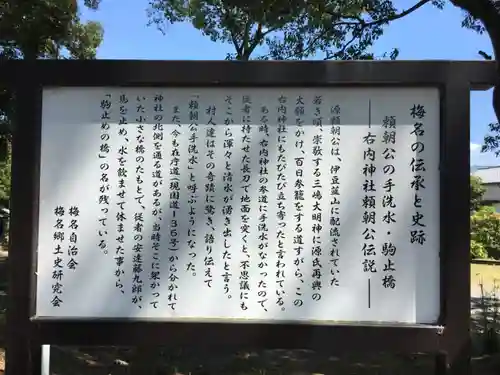 梅名の伝承と史跡
頼朝公の手洗水・駒止橋
――右内神社頼朝公伝説――
源頼朝公は、伊豆韮山に配流されていた
若き頃、崇敬する三嶋大明神に源氏再興の
大願をかけ、百日参籠をする道すがら、この
右内神社にもたびたび立ち寄ったと言われている。
ある時、右内神社の参道に手洗水がなかったので、
従者に持たせた長刀で地面を突くと、不思議にも
そこから渾々と清水が湧き出したと言う。
村人達はその奇蹟に驚き、語り伝えて
「頼朝公手洗水」と呼ぶようになった。
また、今も在庁道(現国道一三六号)から分かれて
神社の北側を通る道があるが、当時そこに架かって
いた小さな橋のたもとで、従者の安達藤九郎が、
馬を止め、水を飲ませて休ませた事から、
「駒止めの橋」の名が残っている。
梅名自治会
梅名郷土史研究会